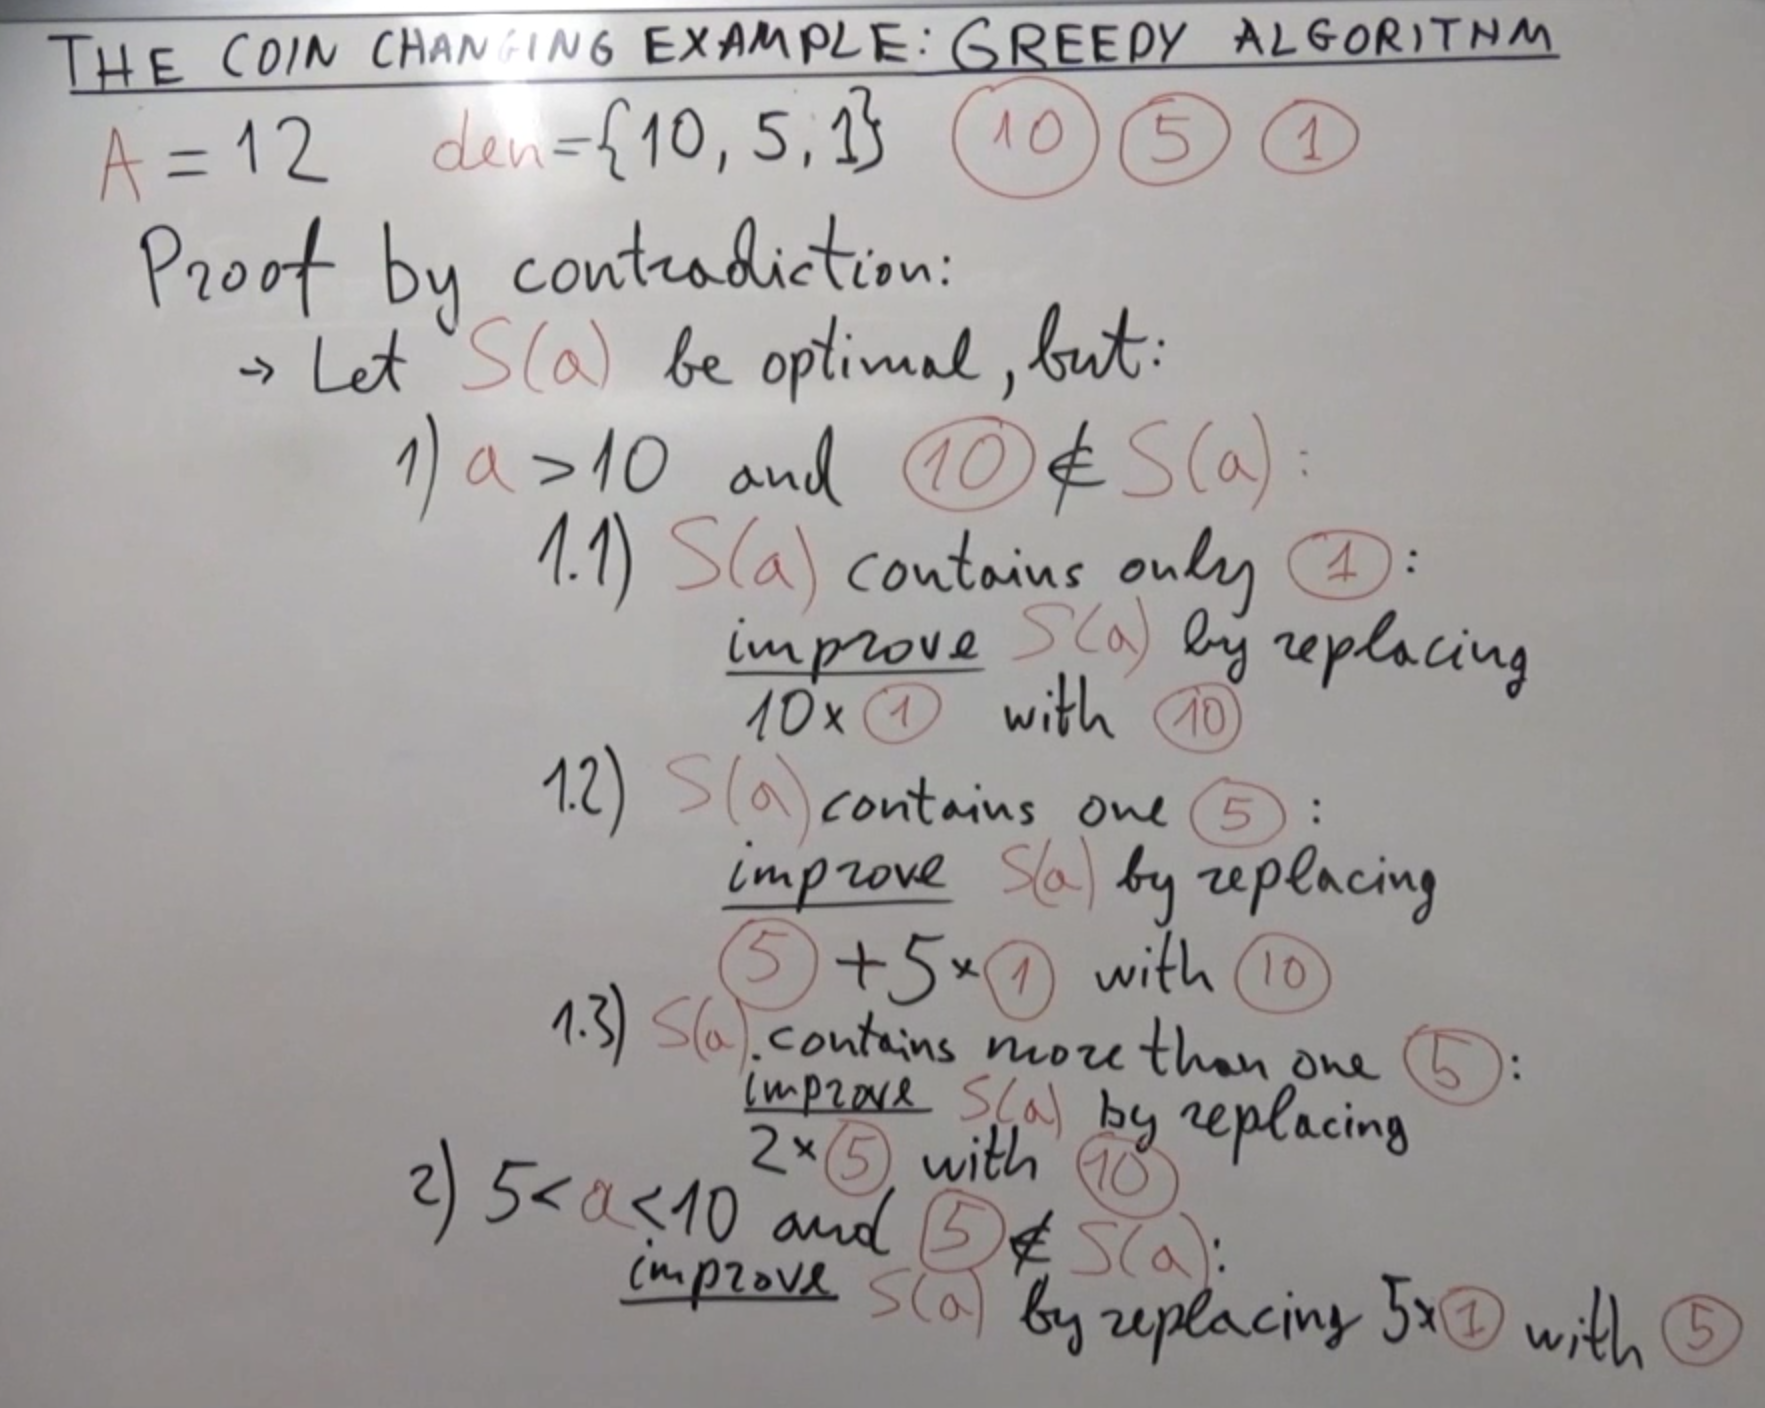 THE COIN CHANGING EXAMPLE: GREEDY ALGORITHM
A = 12 den={10, 5, 1} 10 5 1
Proof by contradiction:
→ Let S(a) be optimal, but:
1) a > 10 and 10 ∉ S(a):
1.1) S(a) contains only 1:
improve S(a) by replacing
10x 1 with 10
1.2) S(a) contains one 5:
improve S(a) by replacing
5 + 5x 1 with 10
1.3) S(a) contains more than one 5:
improve S(a) by replacing
2x 5 with 10
2) 5 < a < 10 and 5 ∉ S(a):
improve S(a) by replacing 5x 1 with 5